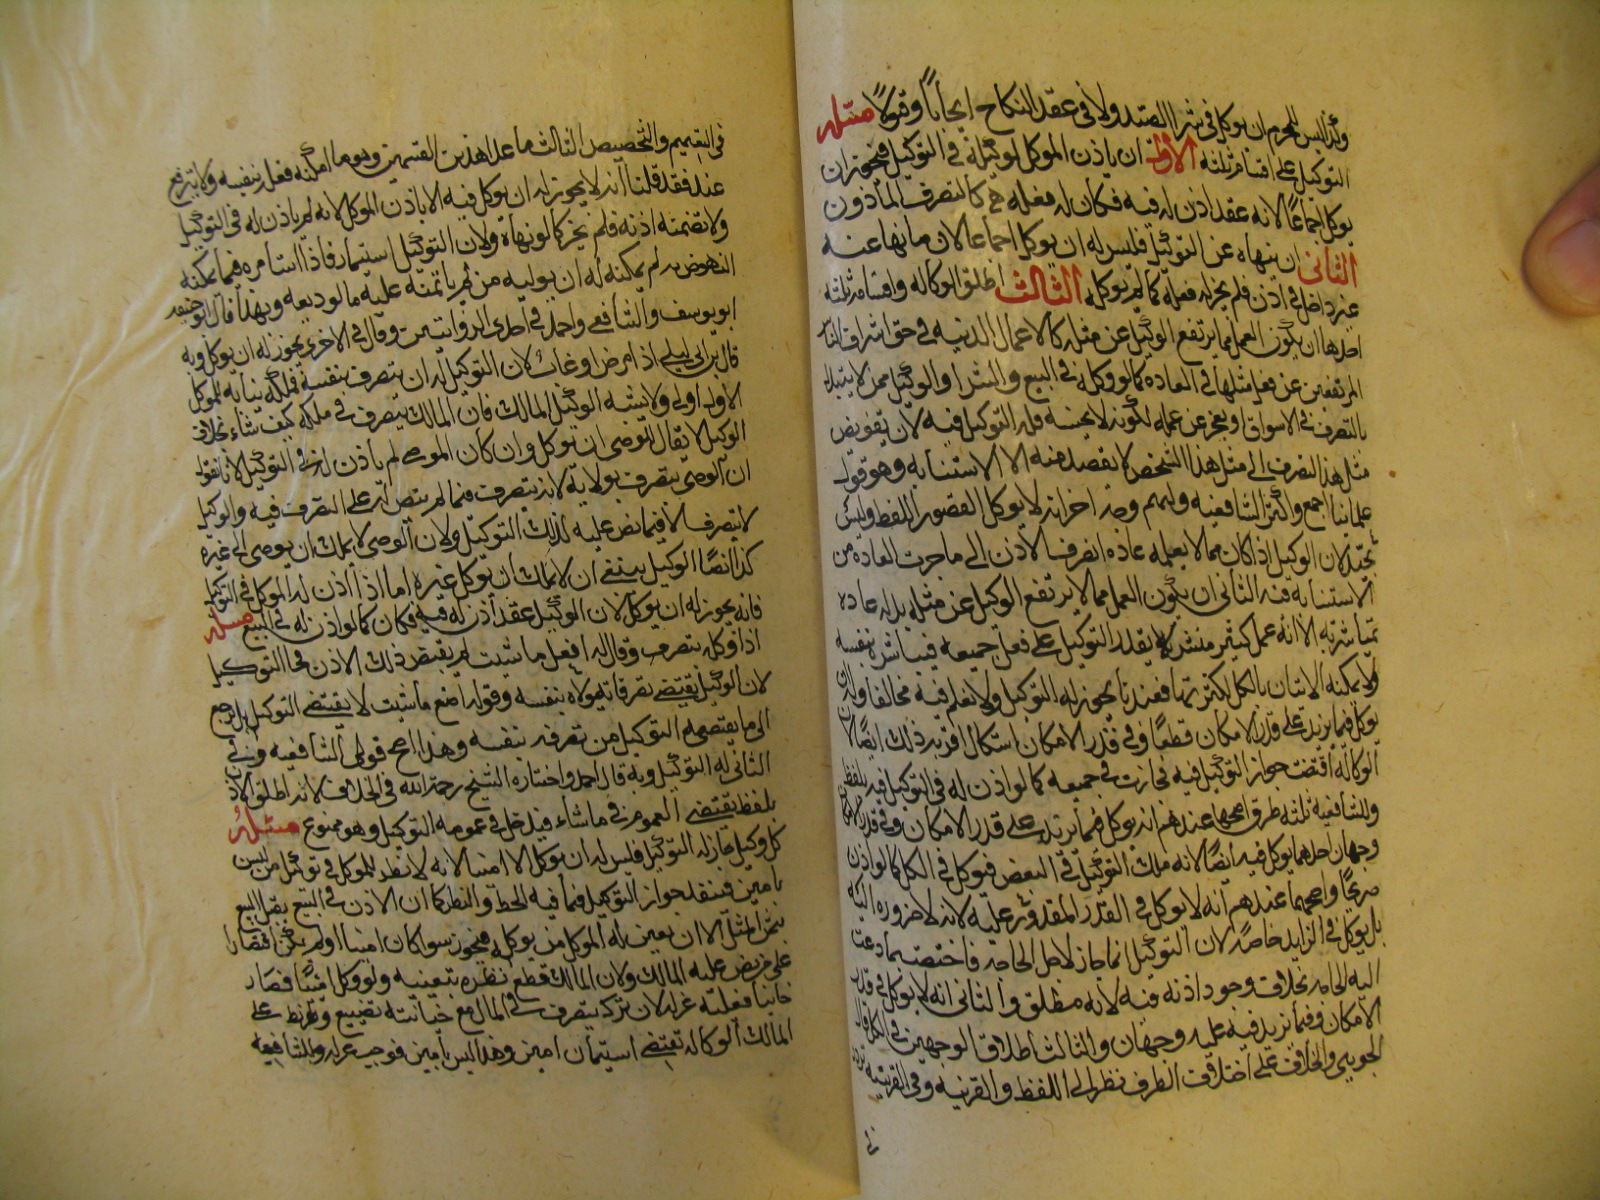 وكذا ليس للمحرم ان يوكل في شرا الصيد ولا في عقد النكاح ايجاباً وقبولاً مسئله
التوكيل على اقسام ثلثه الاول ان ياذن الموكل لوكيله في التوكيل فيجوز ان
يوكل اجماعاً لانه عقد اذن له فيه فكان له فعله كالتصرف الماذون
الثاني ان ينهاه عن التوكيل فليس له ان يوكل اجماعا لان ما نهاه عنه
غير داخل في اذن فلم يجز له فعله كما لو لم يوكله الثالث اطلق الوكاله واقسامه ثلثه
احدها ان يكون العمل مما يرتفع الوكيل عن مثله كالاعمال الدنيه في حق اشراف الناس
المرتفعين عن فعل مثلها في العاده كما لو وكله في البيع والشرا والوكيل ممن لا يتبذل
بالتصرف في الاسواق او يعجز عن عمله لكونه لا يحسنه فله التوكيل فيه لان تفويض
مثل هذا التصرف الى مثل هذا الشخص لا يقصد منه الا الاستنابه وهو قول
علمائنا اجمع واكثر الشافعيه ولهم وجه اخر انه لا يوكل لقصور اللفظ وليس
بجيد لان الوكيل اذا كان مما لا يعمله عاده انصرف الاذن الى ما جرت العاده من
الاستنابه فيه الثاني ان يكون العمل مما لا يرتفع الوكيل عن مثله بل له عاده
بمباشرته الا انه عمل كثير منتشر لا يقدر الوكيل على فعل جميعه فيباشره بنفسه
ولا يمكنه الاتيان بالكل لكثرتها فعندنا يجوز له التوكيل ولا نعلم فيه مخالفا وله ان
يوكل فيما يزيد على قدر الامكان قطعاً وفي قدر الامكان اشكال اقربه ذلك ايضاً لان
الوكاله اقتضت جواز التوكيل فيه فجازت في جميعه كما لو اذن له في التوكيل فيه بلفظ
وللشافعيه ثلثه طرق اصحها عندهم انه يوكل فيما يزيد على قدر الامكان وفي قدر الامكان
وجهان احدهما يوكل فيه ايضاً لانه ملك التوكيل في البعض فيوكل في الكل كما لو اذن
صريحاً واصحهما عندهم انه لا يوكل في القدر المقدور عليه لانه لا ضروره اليه
بل يوكل في الزايد خاصه لان التوكيل انما جاز لاجل الحاجه فاختص بما دعت
اليه الحاجه بخلاف وجود اذنه فيه لانه مطلق والثاني انه لا يوكل في قدر
الامكان وفيما يزيد فيه عليه وجهان والثالث اطلاق الوجهين في الكل قال
الجويني والخلاف على اختلاف الطرف نظر الى اللفظ والقرينه وفي القرينه تردد
في التعميم والتخصيص الثالث ما عدا هذين القسمين وهو ما امكنه فعله بنفسه ولا يترفع
عنه فقد قلنا انه لا يجوز له ان يوكل فيه الا باذن الموكل لانه لم ياذن له في التوكيل
ولا تضمنه اذنه فلم يجز كما لو نهاه ولان التوكيل استيمان فاذا استامنه فيما يمكنه
النهوض به لم يمكنه له ان يوليه من لم ياتمنه عليه كالوديعه وبهذا قال ابو حنيفه
ابو يوسف والشافعي واحمد في احدى الروايتين وقال في الاخرى يجوز له ان يوكل وبه
قال ابن ابي ليلى اذا مرض او غاب لان التوكيل له ان يتصرف بنفسه فملكه نيابه للموكل
الاول اولى ولا يشبه الوكيل المالك فان المالك يتصرف في ملكه كيف شاء بخلاف
الوكيل لا يقال الوصي ان يوكل وان كان الموصي لم ياذن له في التوكيل لانا نقول
ان الوصي يتصرف بولاية لانه يتصرف فيما لم ينص له على التصرف فيه والوكيل
لا يتصرف الا فيما نص عليه لذلك التوكيل ولان الوصي لا يملك ان يوصي الى غيره
كذا ايضاً الوكيل ينبغي ان لا يملك ان يوكل غيره اما اذا اذن له الموكل في التوكيل
فانه يجوز له ان يوكل لان الوكيل عقد اذن له فيه فكان كما لو اذن له في البيع مسئله
اذا وكله بتصرف وقال له افعل ما شيت لم يقتض ذلك الاذن في التوكيل
لان التوكيل يقتضي تصرفا يتولاه بنفسه وقوله اصنع ما شيت لا يقتضي التوكيل بل يرجع
الى ما يقتضيه التوكيل من تصرفه بنفسه وهذا اصح قولي الشافعيه وفي
الثاني له التوكيل وبه قال احمد واختاره الشيخ رحمه الله في الخلاف لانه اطلق الاذن
بلفظ يقتضي العموم في ما شاء فيدخل في عمومه التوكيل وهو ممنوع مسئله
كل وكيل جاز له التوكيل فليس له ان يوكل الا امينا لانه لا نظر للموكل في توكيل من ليس
بامين فيتقيد جواز التوكيل فيما فيه الحظ والنظر كما ان الاذن في البيع يتقيد بالبيع
بثمن المثل الا ان يعين له الموكل من يوكله فيجوز سوا كان امينا او لم يكن اقتصارا
على من نص عليه المالك ولان المالك قطع نظره بتعيينه ولو وكل امينا فصار
خاينا فعليه عزله لان تركه يتصرف في المال مع خيانته تضييع وتفريط على
المالك والوكاله تقتضي استيمان امين وهذا ليس بامين فوجب عزله وللشافعيه